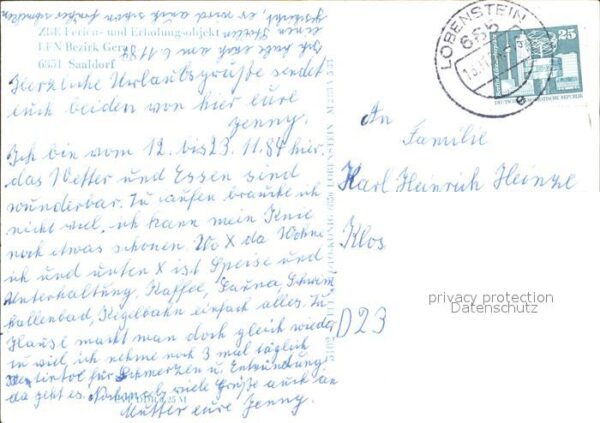 ZBE Ferien- und Erholungsobjekt
LPN Bezirk Gera
6851 Saaldorf
Herzliche Urlaubsgrüße sendet
euch beiden von hier eure
Jenny.
Ich bin vom 12. bis 23. 11. 84 hier,
das Wetter und Essen sind
wunderbar. Zu laufen brauche ich
nicht viel, ich kann mein Knie
noch etwas schonen. Wo X da Wohne
ich und unten X ist Speise und
Unterhaltung, Kaffee, Sauna, Schwim
hallenbad, Kegelbahn einfach alles. Zu
Hause macht man doch gleich wieder
zu viel, ich nehme noch 3 mal täglich
für Schmerzen u. Entzündung
da geht es. Nochmals viele Grüße auch an
Mutter eure Jenny.
LOBENSTEIN
685
e
25
DEUTSCHE DEMOKRATISCHE REPUBLIK
An
Familie
Karl Heinrich Heinze
Klos
D23
privacy protection
Datenschutz